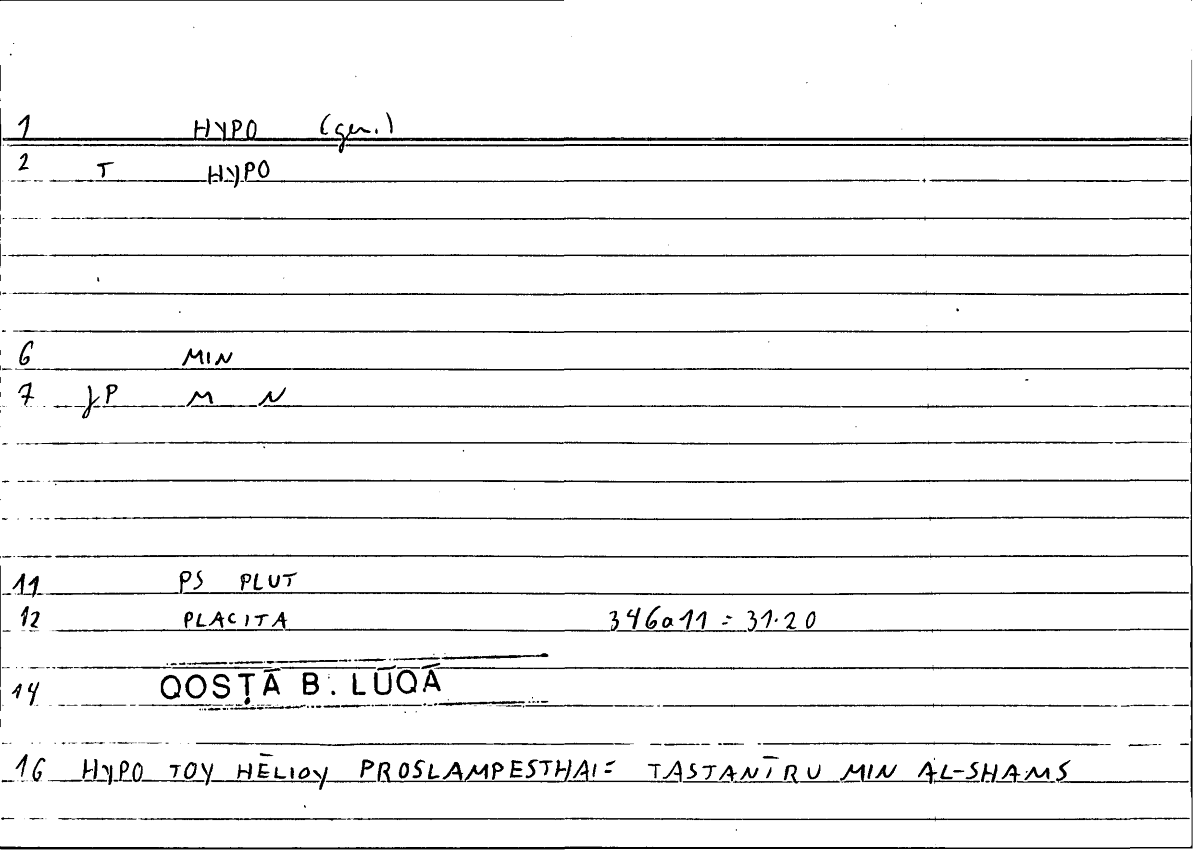 1 HYPO (gen.)
2 T HYPO
6 MIN
7 JP M N
11 PS PLUT
12 PLACITA 346a11 = 31.20
14 QOSṬĀ B. LŪQĀ
16 HYPO TOY HĒLIOY PROSLAMPESTHAI = TASTANĪRU MIN AL-SHAMS